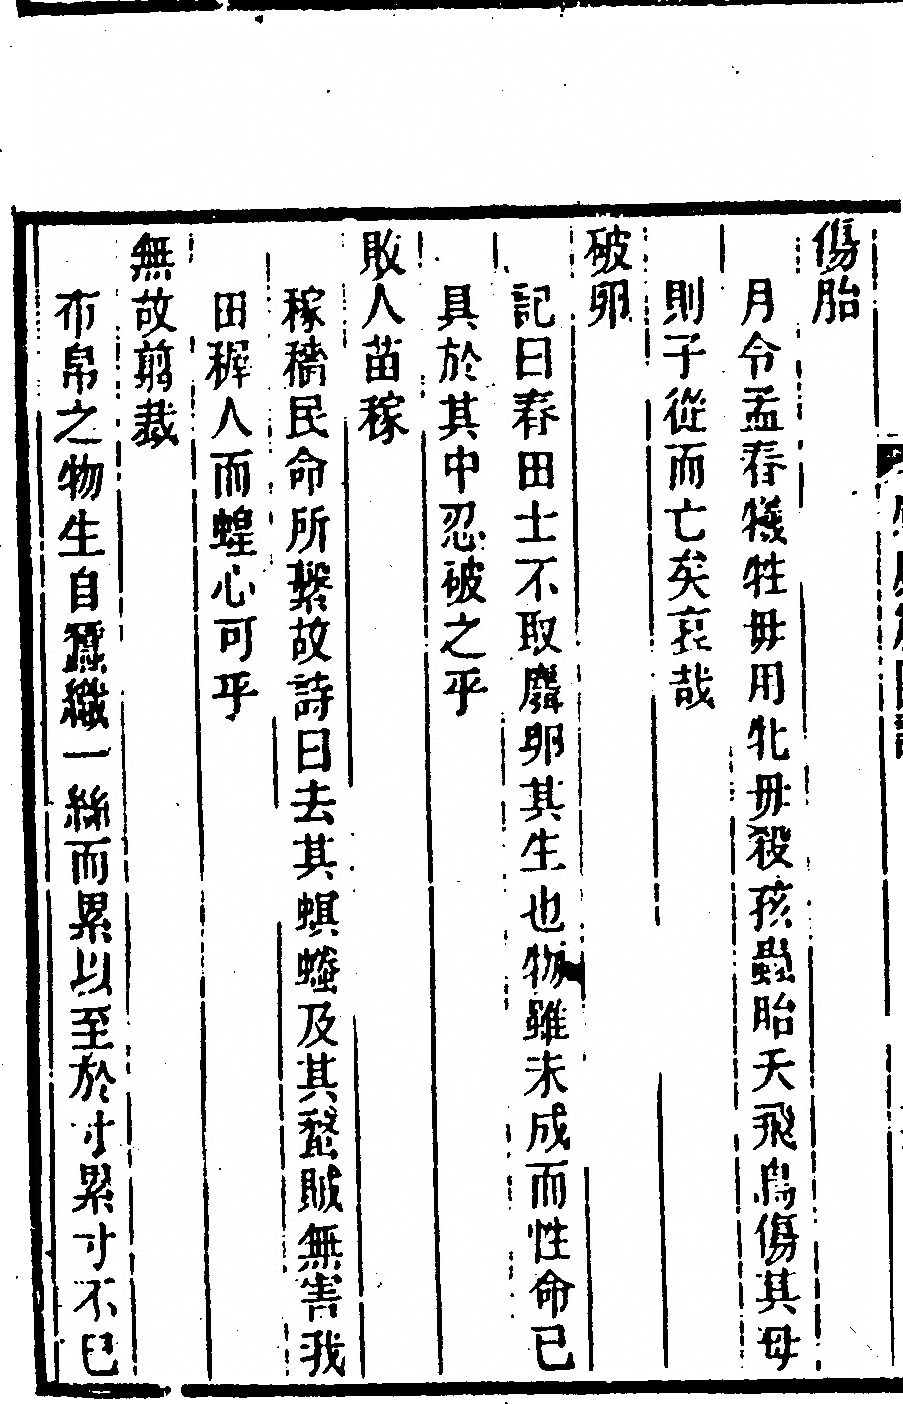 傷胎
月令孟春犧牲毋用牝毋殺孩蟲胎夭飛鳥傷其母
則子從而亡矣哀哉
破卵
記曰春田士不取麛卵其生也物雖未成而性命已
具於其中忍破之乎
敗人苗稼
稼穡民命所繫故詩曰去其螟螣及其蟊賊無害我
田穉人而蝗心可乎
無故剪裁
布帛之物生自蠶織一絲而累以至於寸累寸不已